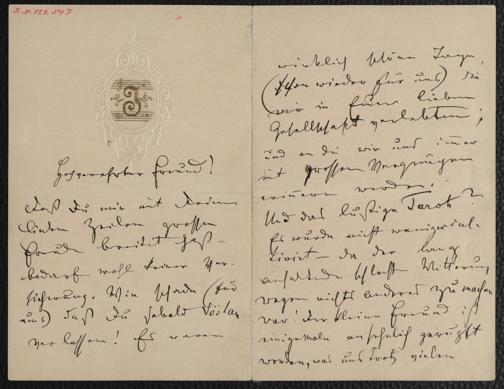 I.N. 122.547
J
Hochverehrter Freund!
Daß Du mir mit Deinen
lieben Zeilen grosse
Freude bereitet hast –
bedarf wohl keiner Ver-
sicherung. Wie schade (für
uns) daß Du sobald Vöslau
verlassen! Es waren
wirklich schöne Tage
(schon wieder für uns) die
wir in Eurer lieben
Gesellschaft verlebten;
und an die wir uns immer
mit grossem Vergnügen
erinnern werden.
Und das lustige Tarok?
Es wurde nicht wenig
– da der lang
anhaltende schlechte Witterung
wegen nichts anderes zu machen
war! Der kleine Freund ist
einigemale ansehnlich gerupft
worden, was uns trotz vielen